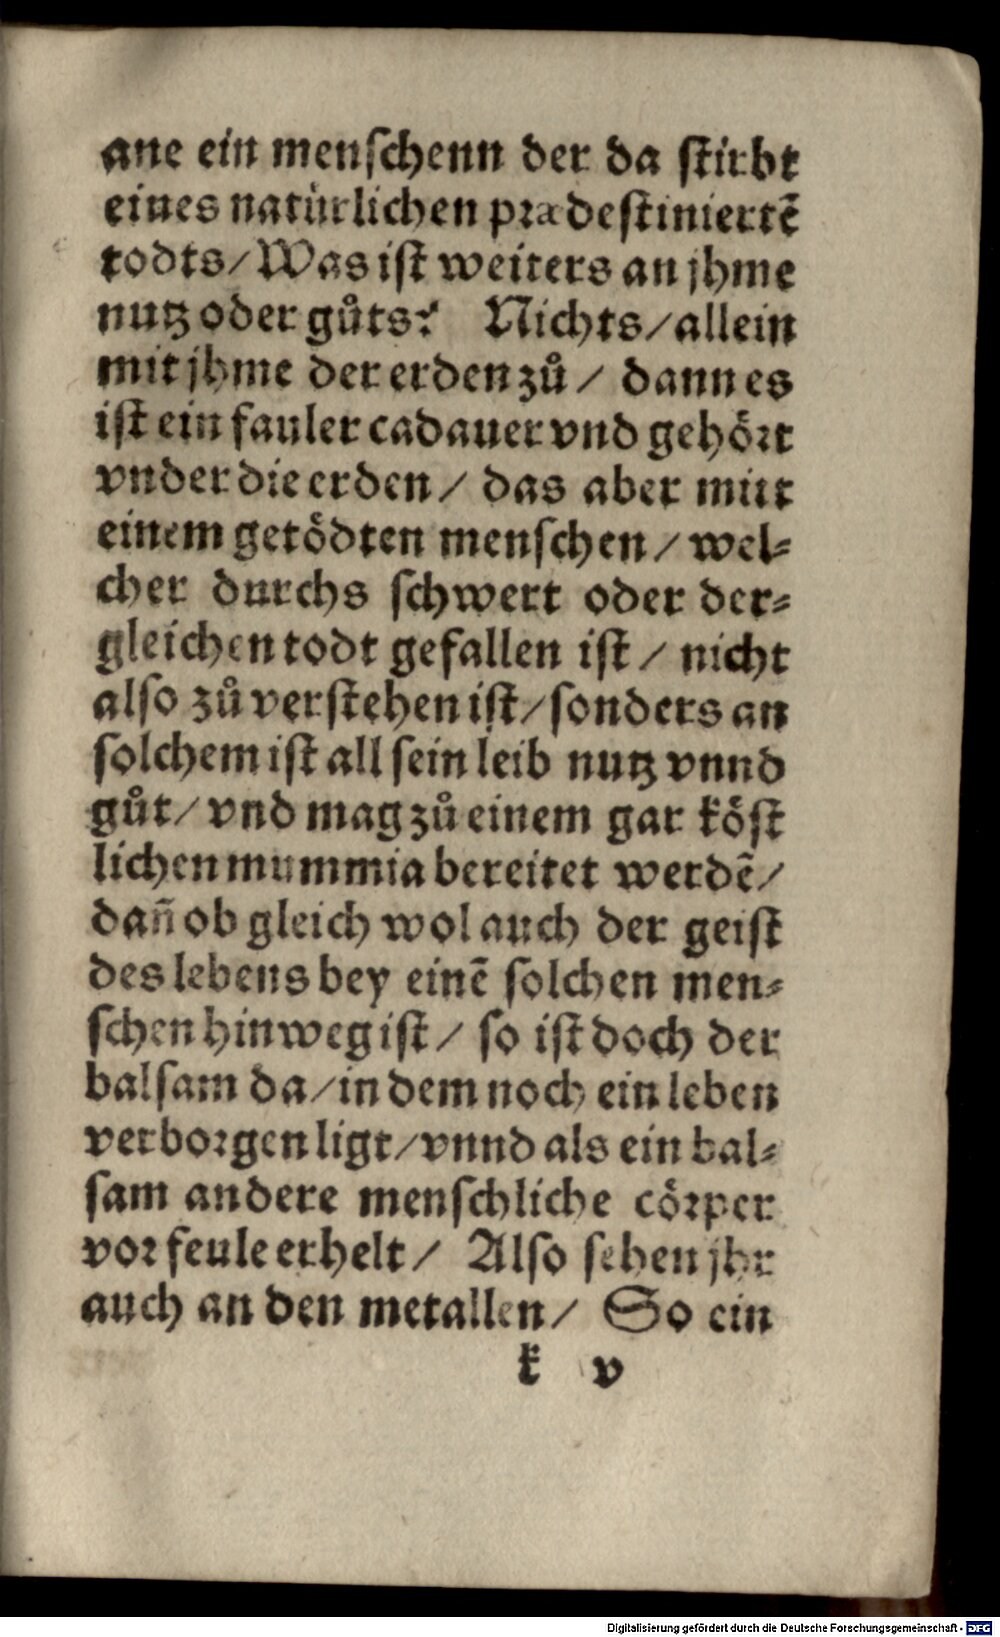 ane ein menſchenn der da ſtirbt
eines natürlichen prædeſtiniertē
todts/Was iſt weiters an jhme
nutz oder gůts? Nichts/allein
mit jhme der erden zů/ dann es
iſt ein fauler cadauer vnd gehört
vnder die erden/ das aber mitt
einem getödten menſchen/ wel⸗
cher durchs ſchwert oder der⸗
gleichen todt gefallen iſt/ nicht
alſo zů verſtehen iſt/ſonders an
ſolchem iſt all ſein leib nutz vnnd
gůt/ vnd mag zů einem gar köſt
lichen mummia bereitet werdē/
dañ ob gleich wol auch der geiſt
des lebens bey einē ſolchen men⸗
ſchen hinweg iſt/ ſo iſt doch der
balſam da/in dem noch ein leben
verborgen ligt/vnnd als ein bal⸗
ſam andere menſchliche cörper
vor feule erhelt/ Alſo ſehen jhr
auch an den metallen/ So ein
k v
Digitalisierung gefördert durch die Deutsche Forschungsgemeinschaft - DFG